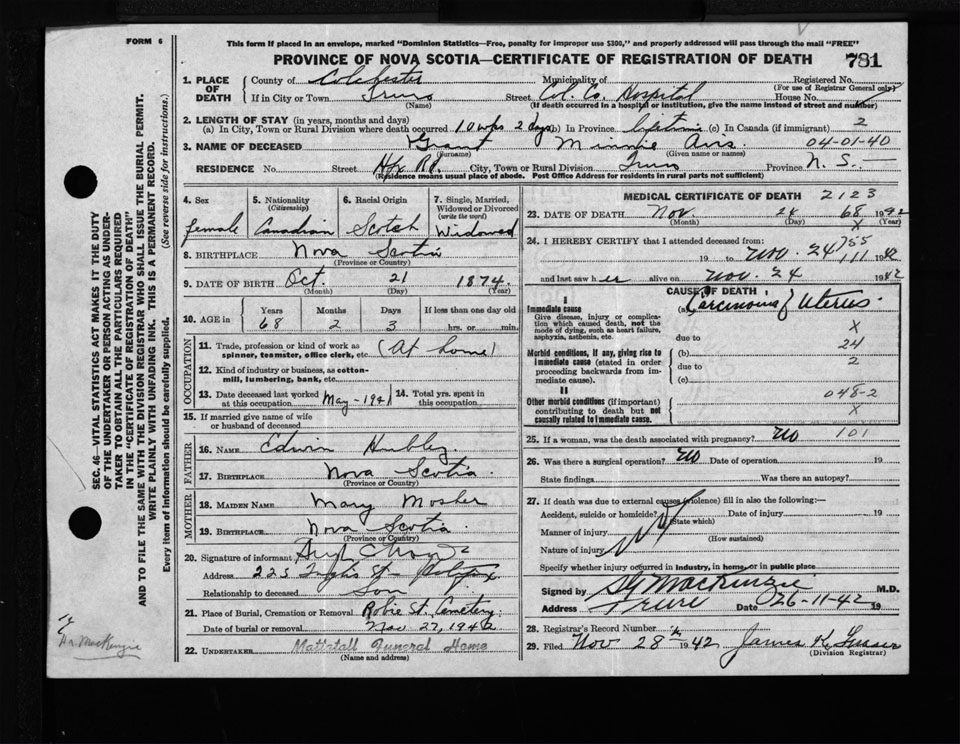 FORM 6
This form if placed in an envelope, marked "Dominion Statistics—Free, penalty for improper use $300," and properly addressed will pass through the mail "FREE"
PROVINCE OF NOVA SCOTIA—CERTIFICATE OF REGISTRATION OF DEATH 781
1. PLACE OF DEATH County of Colchester Municipality of Registered No.
(For use of Registrar General only)
If in City or Town Truro Street Col. Co. Hospital House No.
(Name) (If death occurred in a hospital or institution, give the name instead of street and number)
2. LENGTH OF STAY (in years, months and days)
(a) In City, Town or Rural Division where death occurred 10 wks 2 days (b) In Province lifetime (c) In Canada (if immigrant) 2
3. NAME OF DECEASED Grant Minnie Avis 04-01-40
(Surname) (Given name or names)
RESIDENCE No. Street Hfx Rd. City, Town or Rural Division Truro Province N. S.
(Residence means usual place of abode. Post Office Address for residents in rural parts not sufficient)
4. Sex 5. Nationality (Citizenship) 6. Racial Origin 7. Single, Married, Widowed or Divorced (write the word)
female Canadian Scotch Widowed
8. BIRTHPLACE Nova Scotia
(Province or Country)
9. DATE OF BIRTH Oct. 21 1874
(Month) (Day) (Year)
10. AGE in Years Months Days If less than one day old
68 2 3 hrs. or min.
OCCUPATION
11. Trade, profession or kind of work as spinner, teamster, office clerk, etc. (At home)
12. Kind of industry or business, as cotton-mill, lumbering, bank, etc.
13. Date deceased last worked at this occupation May-1941 14. Total yrs. spent in this occupation
15. If married give name of wife or husband of deceased
FATHER
16. NAME Edwin Hubley
17. BIRTHPLACE Nova Scotia
(Province or Country)
MOTHER
18. MAIDEN NAME Mary Mosher
19. BIRTHPLACE Nova Scotia
(Province or Country)
20. Signature of informant
Address 225
Relationship to deceased Son
21. Place of Burial, Cremation or Removal Robie St. Cemetery
Date of burial or removal Nov 27, 1942
22. UNDERTAKER Mattatall Funeral Home
(Name and address)
MEDICAL CERTIFICATE OF DEATH 2123
23. DATE OF DEATH Nov. 24 68 1942
(Month) (Day) (Year)
24. I HEREBY CERTIFY that I attended deceased from: 755
19 to Nov. 24 111 1942
and last saw her alive on Nov. 24 1942
CAUSE OF DEATH
I
Immediate cause (a) Carcinoma of Uterus.
Give disease, injury or complication which caused death, not the mode of dying, such as heart failure, asphyxia, asthenia, etc. due to X
24
Morbid conditions, if any, giving rise to immediate cause (stated in order proceeding backwards from immediate cause). (b)
due to 2
(c)
II
Other morbid conditions (if important) contributing to death but not causally related to immediate cause. 048-2
X
25. If a woman, was the death associated with pregnancy? No 101
26. Was there a surgical operation? No Date of operation 19
State findings Was there an autopsy?
27. If death was due to external causes (violence) fill in also the following:—
Accident, suicide or homicide? Date of injury 19
(State which)
Manner of injury
(How sustained)
Nature of injury
Specify whether injury occurred in industry, in home, or in public place
Signed by MacKenzie M.D.
Address Truro Date 26-11-42 19
28. Registrar's Record Number
29. Filed Nov 28th 1942 James K. Fraser
(Division Registrar)
SEC. 46—VITAL STATISTICS ACT MAKES IT THE DUTY
OF THE UNDERTAKER OR PERSON ACTING AS UNDER-
TAKER TO OBTAIN ALL THE PARTICULARS REQUIRED
IN THE "CERTIFICATE OF REGISTRATION OF DEATH"
AND TO FILE THE SAME WITH THE DIVISION REGISTRAR WHO SHALL ISSUE THE BURIAL PERMIT.
WRITE PLAINLY WITH UNFADING INK. THIS IS A PERMANENT RECORD.
Every item of information should be carefully supplied. (See reverse side for instructions.)
Dr. MacKenzie